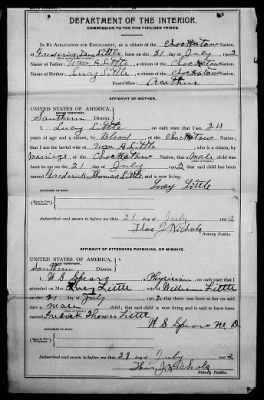 DEPARTMENT OF THE INTERIOR.
COMMISSION TO THE FIVE CIVILIZED TRIBES.
IN RE APPLICATION FOR ENROLLMENT, as a citizen of the Choctaw Nation, of
Frederick Thomas Little, born on the 21 day of July, 1902
Name of Father: Wm H Little a citizen of the Choctaw Nation.
Name of Mother: Lucy Little a citizen of the Choctaw Nation.
Post-Office
AFFIDAVIT OF MOTHER.
UNITED STATES OF AMERICA,
Southern District.
I, Lucy Little, on oath state that I am 24
years of age and a citizen by Blood, of the Choctaw Nation;
that I am the lawful wife of Wm H Little, who is a citizen, by
marriage, of the Choctaw Nation; that a male child was
born to me on the 21 day of July, 1902; that said child has been named
Frederick Thomas Little, and is now living.
Lucy Little
Subscribed and sworn to before me this 23 day of July, 1902
Thos J Nichols
Notary Public.
AFFIDAVIT OF ATTENDING PHYSICIAN, OR MIDWIFE.
UNITED STATES OF AMERICA,
Southern District.
I, W S Spears, a Physician, on oath state that I
attended on Mrs. Lucy Little, wife of William Little
on the 21 day of July, 1902; that there was born to her on said date a
male child; that said child is now living and is said to have been named
Fredrick Thomas Little
W S Spears M D
Subscribed and sworn to before me this 23 day of July, 1902
Thos J Nichols
Notary Public.